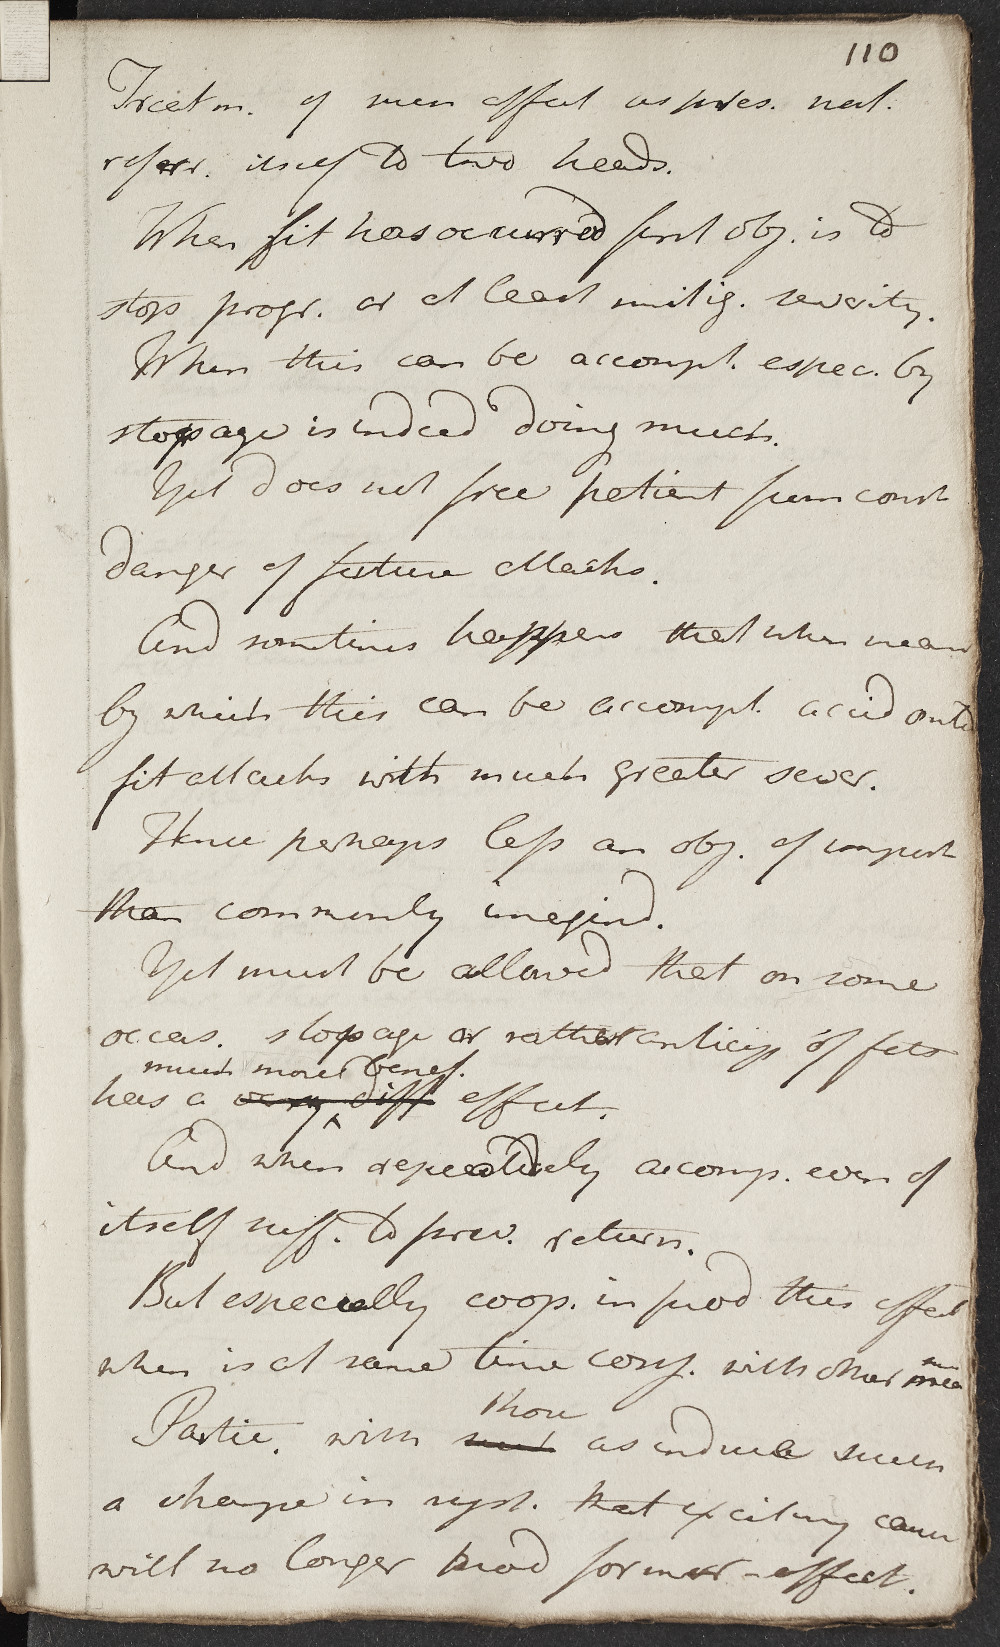 110
Treatm. of such affect as pres. nat.
referr. itself to two heads.
When fit has ocurred first obj. is to
stop progr. or at least mitig. severity.
When this can be accompl. espec. by
stopage is indeed doing much.
Yet does not free patient from const
danger of future attacks.
And sometimes happens that when mean
by which this can be accompl. avoid
fit attacks with much greater sever.
Hence perhaps less an obj. of import
than commonly imagind.
Yet must be allowed that on some
occas. stopage or rather anticip of fits
much more benef.
has a very diff effect.
And when repeatedly accomp. even of
itself suff. to prev. return.
But especially coop. in prod this effect
when is at same time conj. with other mea
those
Partic. with such as induce such
a change in syst. that exciting cause
will no longer prod former effect.